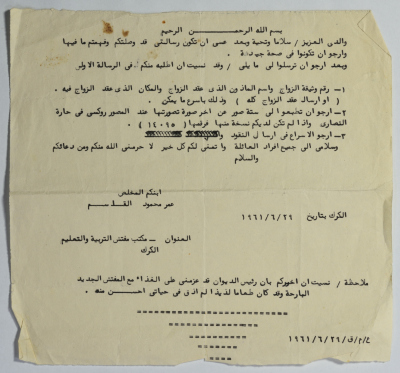 بسم الله الرحمـــــن الرحيم
والدى العزيز / سلاما وتحية وبعد عسى ان تكون رسالتى قد وصلتكم وفهمتم ما فيها
وارجو ان تكونوا فى صحة جيدة .
وبعد ارجو ان ترسلوا لى ما يلى / وقد نسيت ان اطلبه منكم فى الرسالة الاولى
١ – رقم وثيقة الزواج واسم الماذون الذى عقد الزواج والمكان الذى عقد الزواج فيه .
( او ارسالة عقد الزواج كله ) وذلك باسرع ما يمكن .
٢ – ارجو ان تطبعوا لى ستة صور عن اخر صورة تصورتها عند المصور روكسى فى حارة
النصارى واذا لم تكن لديكم نسخة منها فرقمها ( ١٤٠٩٥ )
٣ – ارجو الاسراع فى ارسال النقود
وسلامى الى جميع افراد العائلة واتمنى لكم كل خير لا حرمنى الله منكم ومن دعائكم
والسلام
ابنكم المخلص
عمر محمود القاسم
الكرك بتاريخ ١٩٦١/٦/٢٩
العنوان – مكتب مفتش التربية والتعليم
الكرك
ملاحظة / نسيت ان اخبركم بان رئيس الديوان قد عزمنى على الغذاء مع المفتش الجديد
البارحة وقد كان طعاما لذيذا لم اذق فى حياتى احسن منه .
ع/م/ق/١٩٦١/٦/٢٩